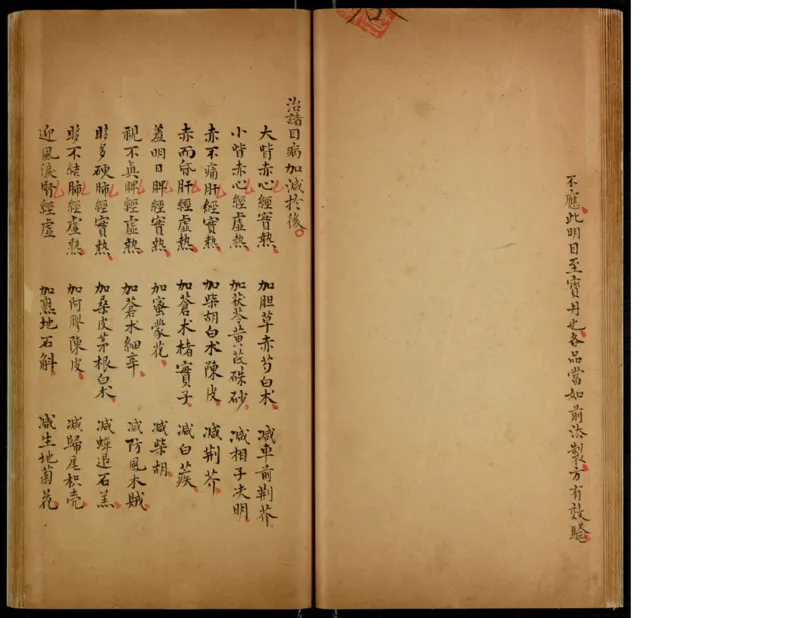 不應此明目至寶丹也各品當如前法製方有效驗
治諸目病加減於後
大眥赤心經實熱 加胆草赤芍白术 減車前荆芥
小眥赤心經虛熱 加茯苓黃芪硃砂 減相子决明
赤不痛肝經實熱 加柴胡白术陳皮 減荆芥
赤而昏肝經虛熱 加蒼术楮實子 減白蒺
羞明日脾經實熱 加蜜蒙花 減柴胡
視不眞脾經虛熱 加蒼术細辛 減防風木賊
眵多硬肺經實熱 加桑皮茅根白术 減蟬退石羔
眵不結肺經虛熱 加阿膠陳皮 減歸尾枳壳
迎風淚腎經虛 加熟地石斛 減生地菊花